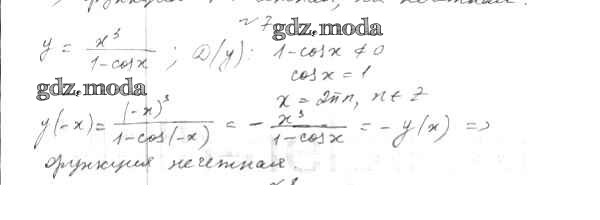 №7
gdz.moda
y = x³/(1-cosx) ; D(y): 1-cosx ≠ 0
cosx = 1
gdz.moda
x = 2πn, n∈Z
y(-x) = (-x)³/(1-cos(-x)) = - x³/(1-cosx) = -y(x) =>
функция нечетная.